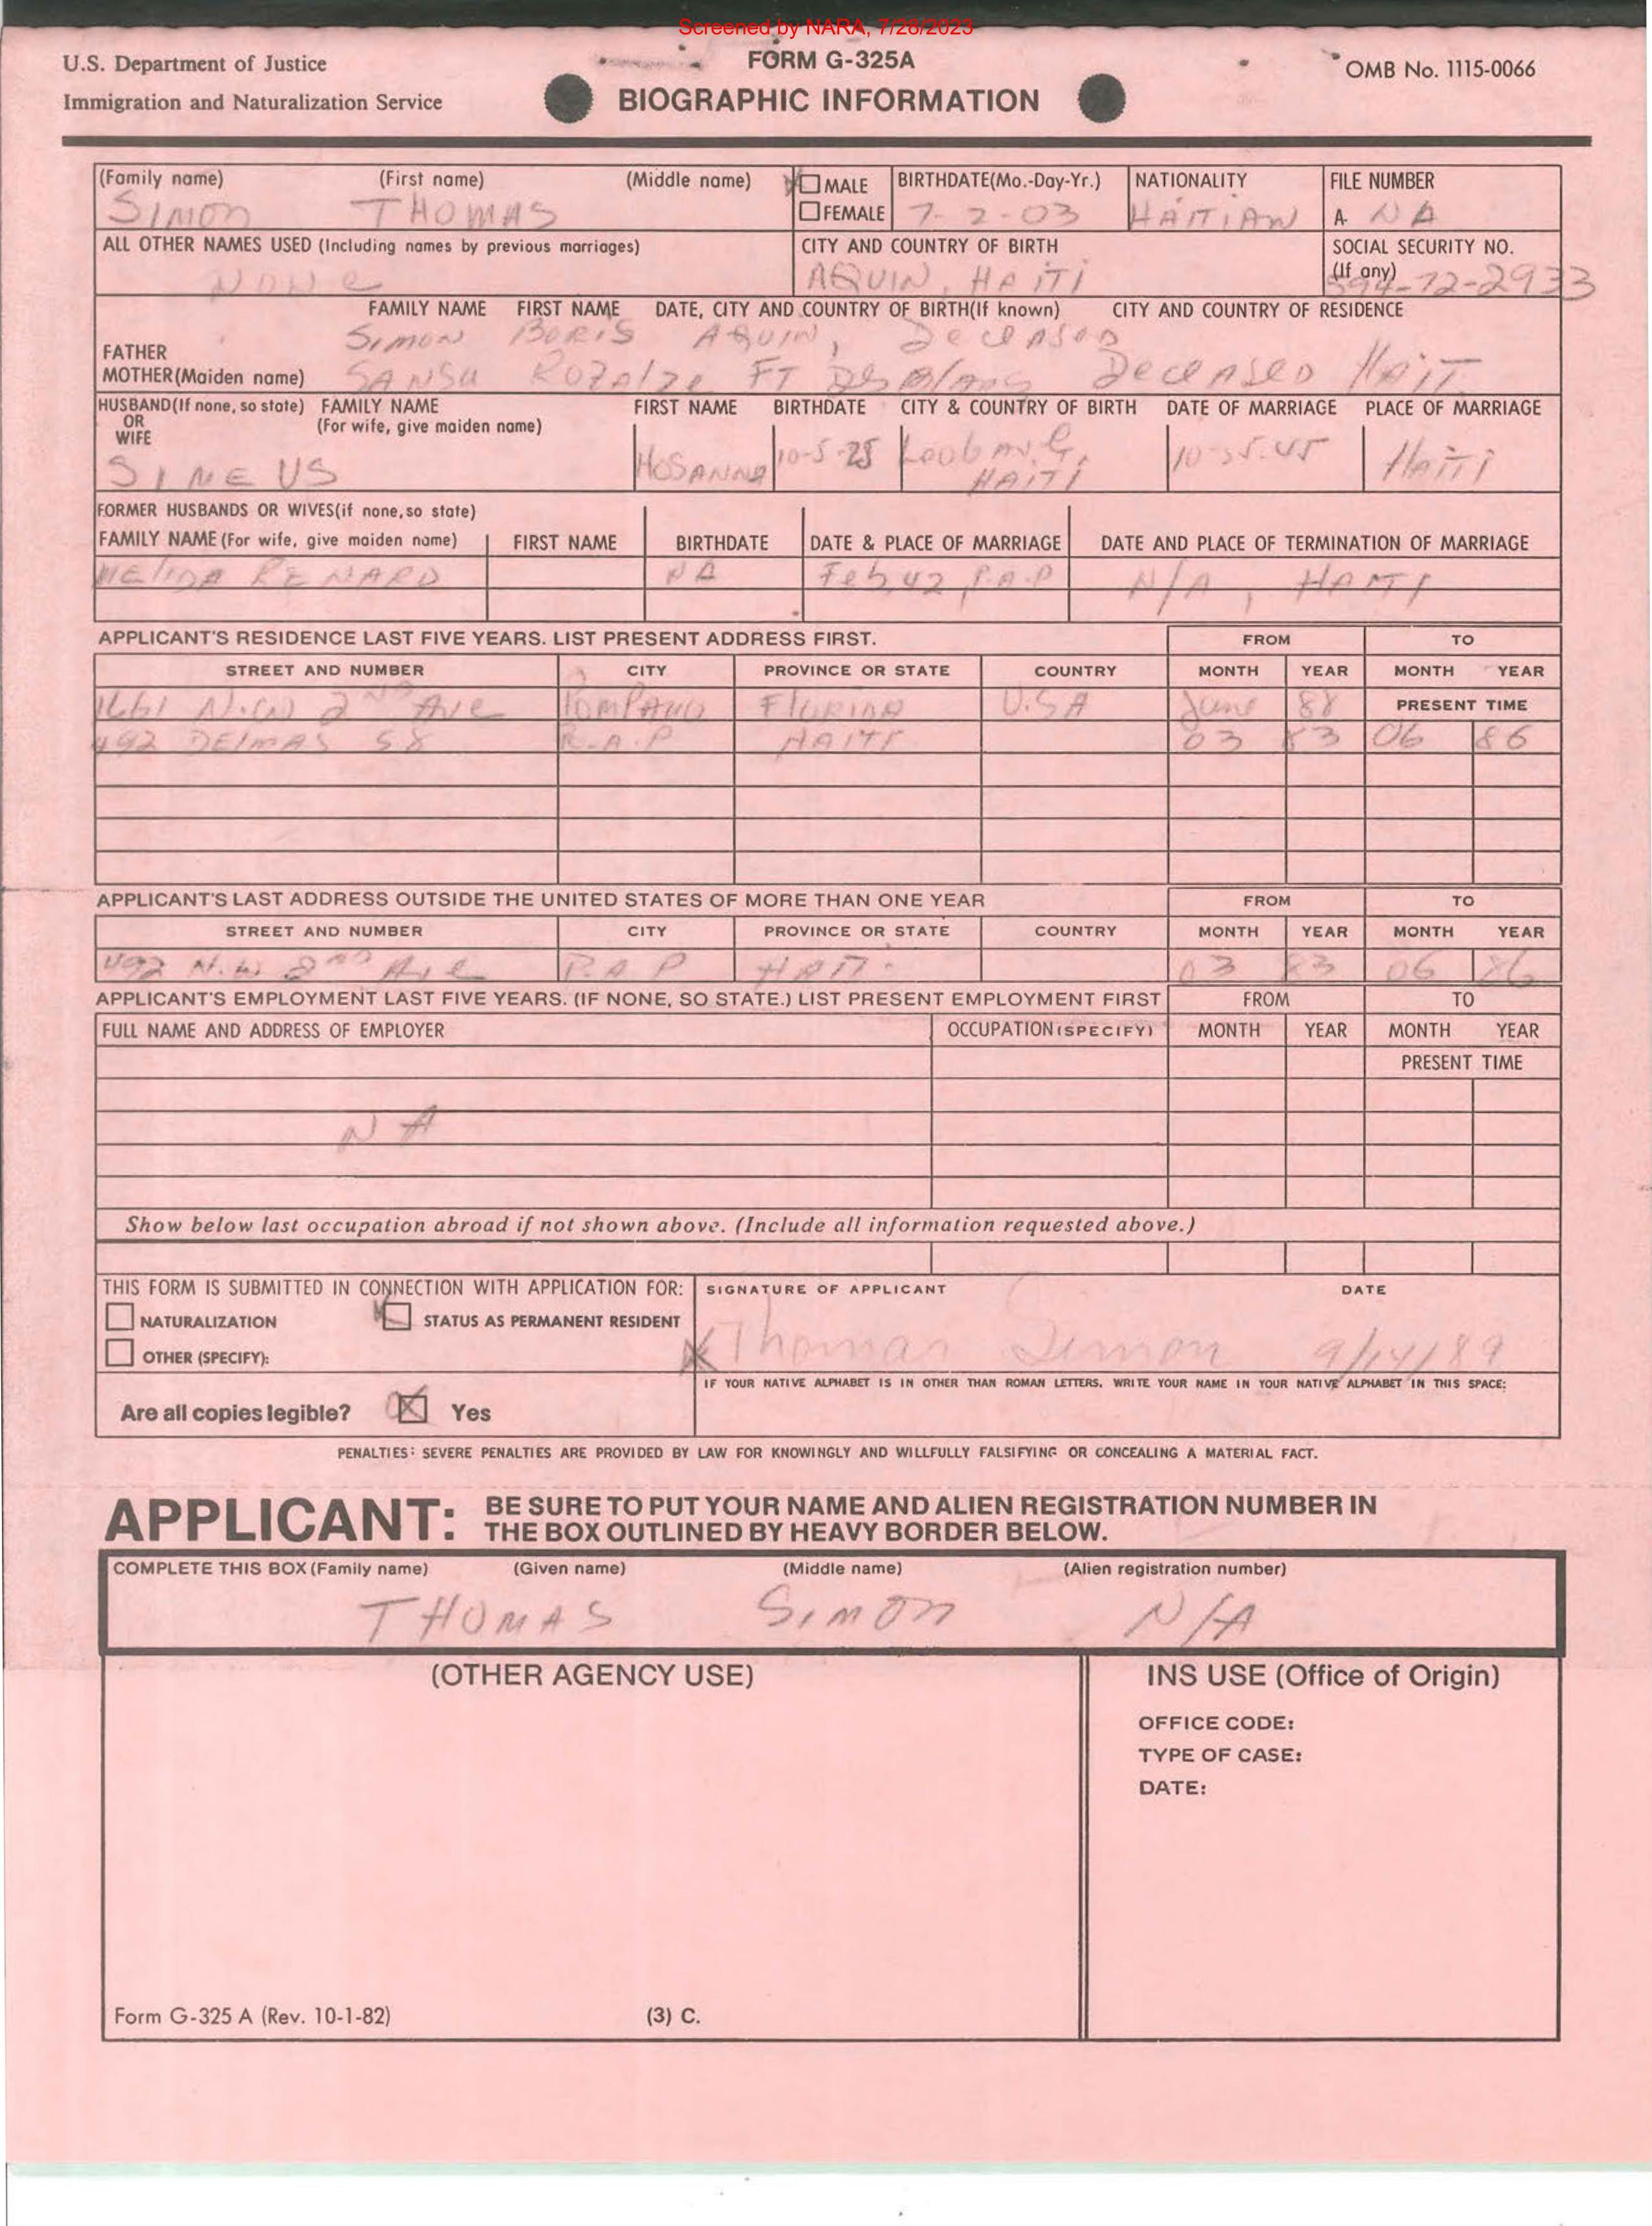 Screened by NARA, 7/28/2023
U.S. Department of Justice
Immigration and Naturalization Service
FORM G-325A
BIOGRAPHIC INFORMATION
OMB No. 1115-0066
(Family name) (First name) (Middle name) MALE FEMALE BIRTHDATE(Mo.-Day-Yr.) NATIONALITY FILE NUMBER
SIMON THOMAS 7-2-03 HAITIAN A- NA
ALL OTHER NAMES USED (Including names by previous marriages) CITY AND COUNTRY OF BIRTH SOCIAL SECURITY NO. (If any)
NONE AQUIN, HAITI 594-72-2933
FAMILY NAME FIRST NAME DATE, CITY AND COUNTRY OF BIRTH(If known) CITY AND COUNTRY OF RESIDENCE
FATHER SIMON BORIS AQUIN, Deceased
MOTHER(Maiden name) SANSU FT Deceased
HUSBAND(If none, so state) OR WIFE FAMILY NAME (For wife, give maiden name) FIRST NAME BIRTHDATE CITY & COUNTRY OF BIRTH DATE OF MARRIAGE PLACE OF MARRIAGE
SINEUS HOSANNA 10-5-25 HAITI HAITI
FORMER HUSBANDS OR WIVES(if none,so state)
FAMILY NAME (For wife, give maiden name) FIRST NAME BIRTHDATE DATE & PLACE OF MARRIAGE DATE AND PLACE OF TERMINATION OF MARRIAGE
RENARD NA Feb, 42, P.A.P N/A, HAITI
APPLICANT'S RESIDENCE LAST FIVE YEARS. LIST PRESENT ADDRESS FIRST. FROM TO
STREET AND NUMBER CITY PROVINCE OR STATE COUNTRY MONTH YEAR MONTH YEAR
1661 N.W 2ND Ave POMPANO FLORIDA U.SA June 88 PRESENT TIME
492 DELMAS 58 P.A.P HAITI 03 83 06 86
APPLICANT'S LAST ADDRESS OUTSIDE THE UNITED STATES OF MORE THAN ONE YEAR FROM TO
STREET AND NUMBER CITY PROVINCE OR STATE COUNTRY MONTH YEAR MONTH YEAR
492 N.W 2ND Ave P.A P HAITI 03 83 06 86
APPLICANT'S EMPLOYMENT LAST FIVE YEARS. (IF NONE, SO STATE.) LIST PRESENT EMPLOYMENT FIRST FROM TO
FULL NAME AND ADDRESS OF EMPLOYER OCCUPATION (SPECIFY) MONTH YEAR MONTH YEAR
PRESENT TIME
NA
Show below last occupation abroad if not shown above. (Include all information requested above.)
THIS FORM IS SUBMITTED IN CONNECTION WITH APPLICATION FOR: SIGNATURE OF APPLICANT DATE
NATURALIZATION STATUS AS PERMANENT RESIDENT
OTHER (SPECIFY): Thomas Simon 9/14/89
IF YOUR NATIVE ALPHABET IS IN OTHER THAN ROMAN LETTERS, WRITE YOUR NAME IN YOUR NATIVE ALPHABET IN THIS SPACE:
Are all copies legible? Yes
PENALTIES: SEVERE PENALTIES ARE PROVIDED BY LAW FOR KNOWINGLY AND WILLFULLY FALSIFYING OR CONCEALING A MATERIAL FACT.
APPLICANT: BE SURE TO PUT YOUR NAME AND ALIEN REGISTRATION NUMBER IN
THE BOX OUTLINED BY HEAVY BORDER BELOW.
COMPLETE THIS BOX (Family name) (Given name) (Middle name) (Alien registration number)
THOMAS SIMON N/A
(OTHER AGENCY USE) INS USE (Office of Origin)
OFFICE CODE:
TYPE OF CASE:
DATE:
Form G-325 A (Rev. 10-1-82) (3) C.